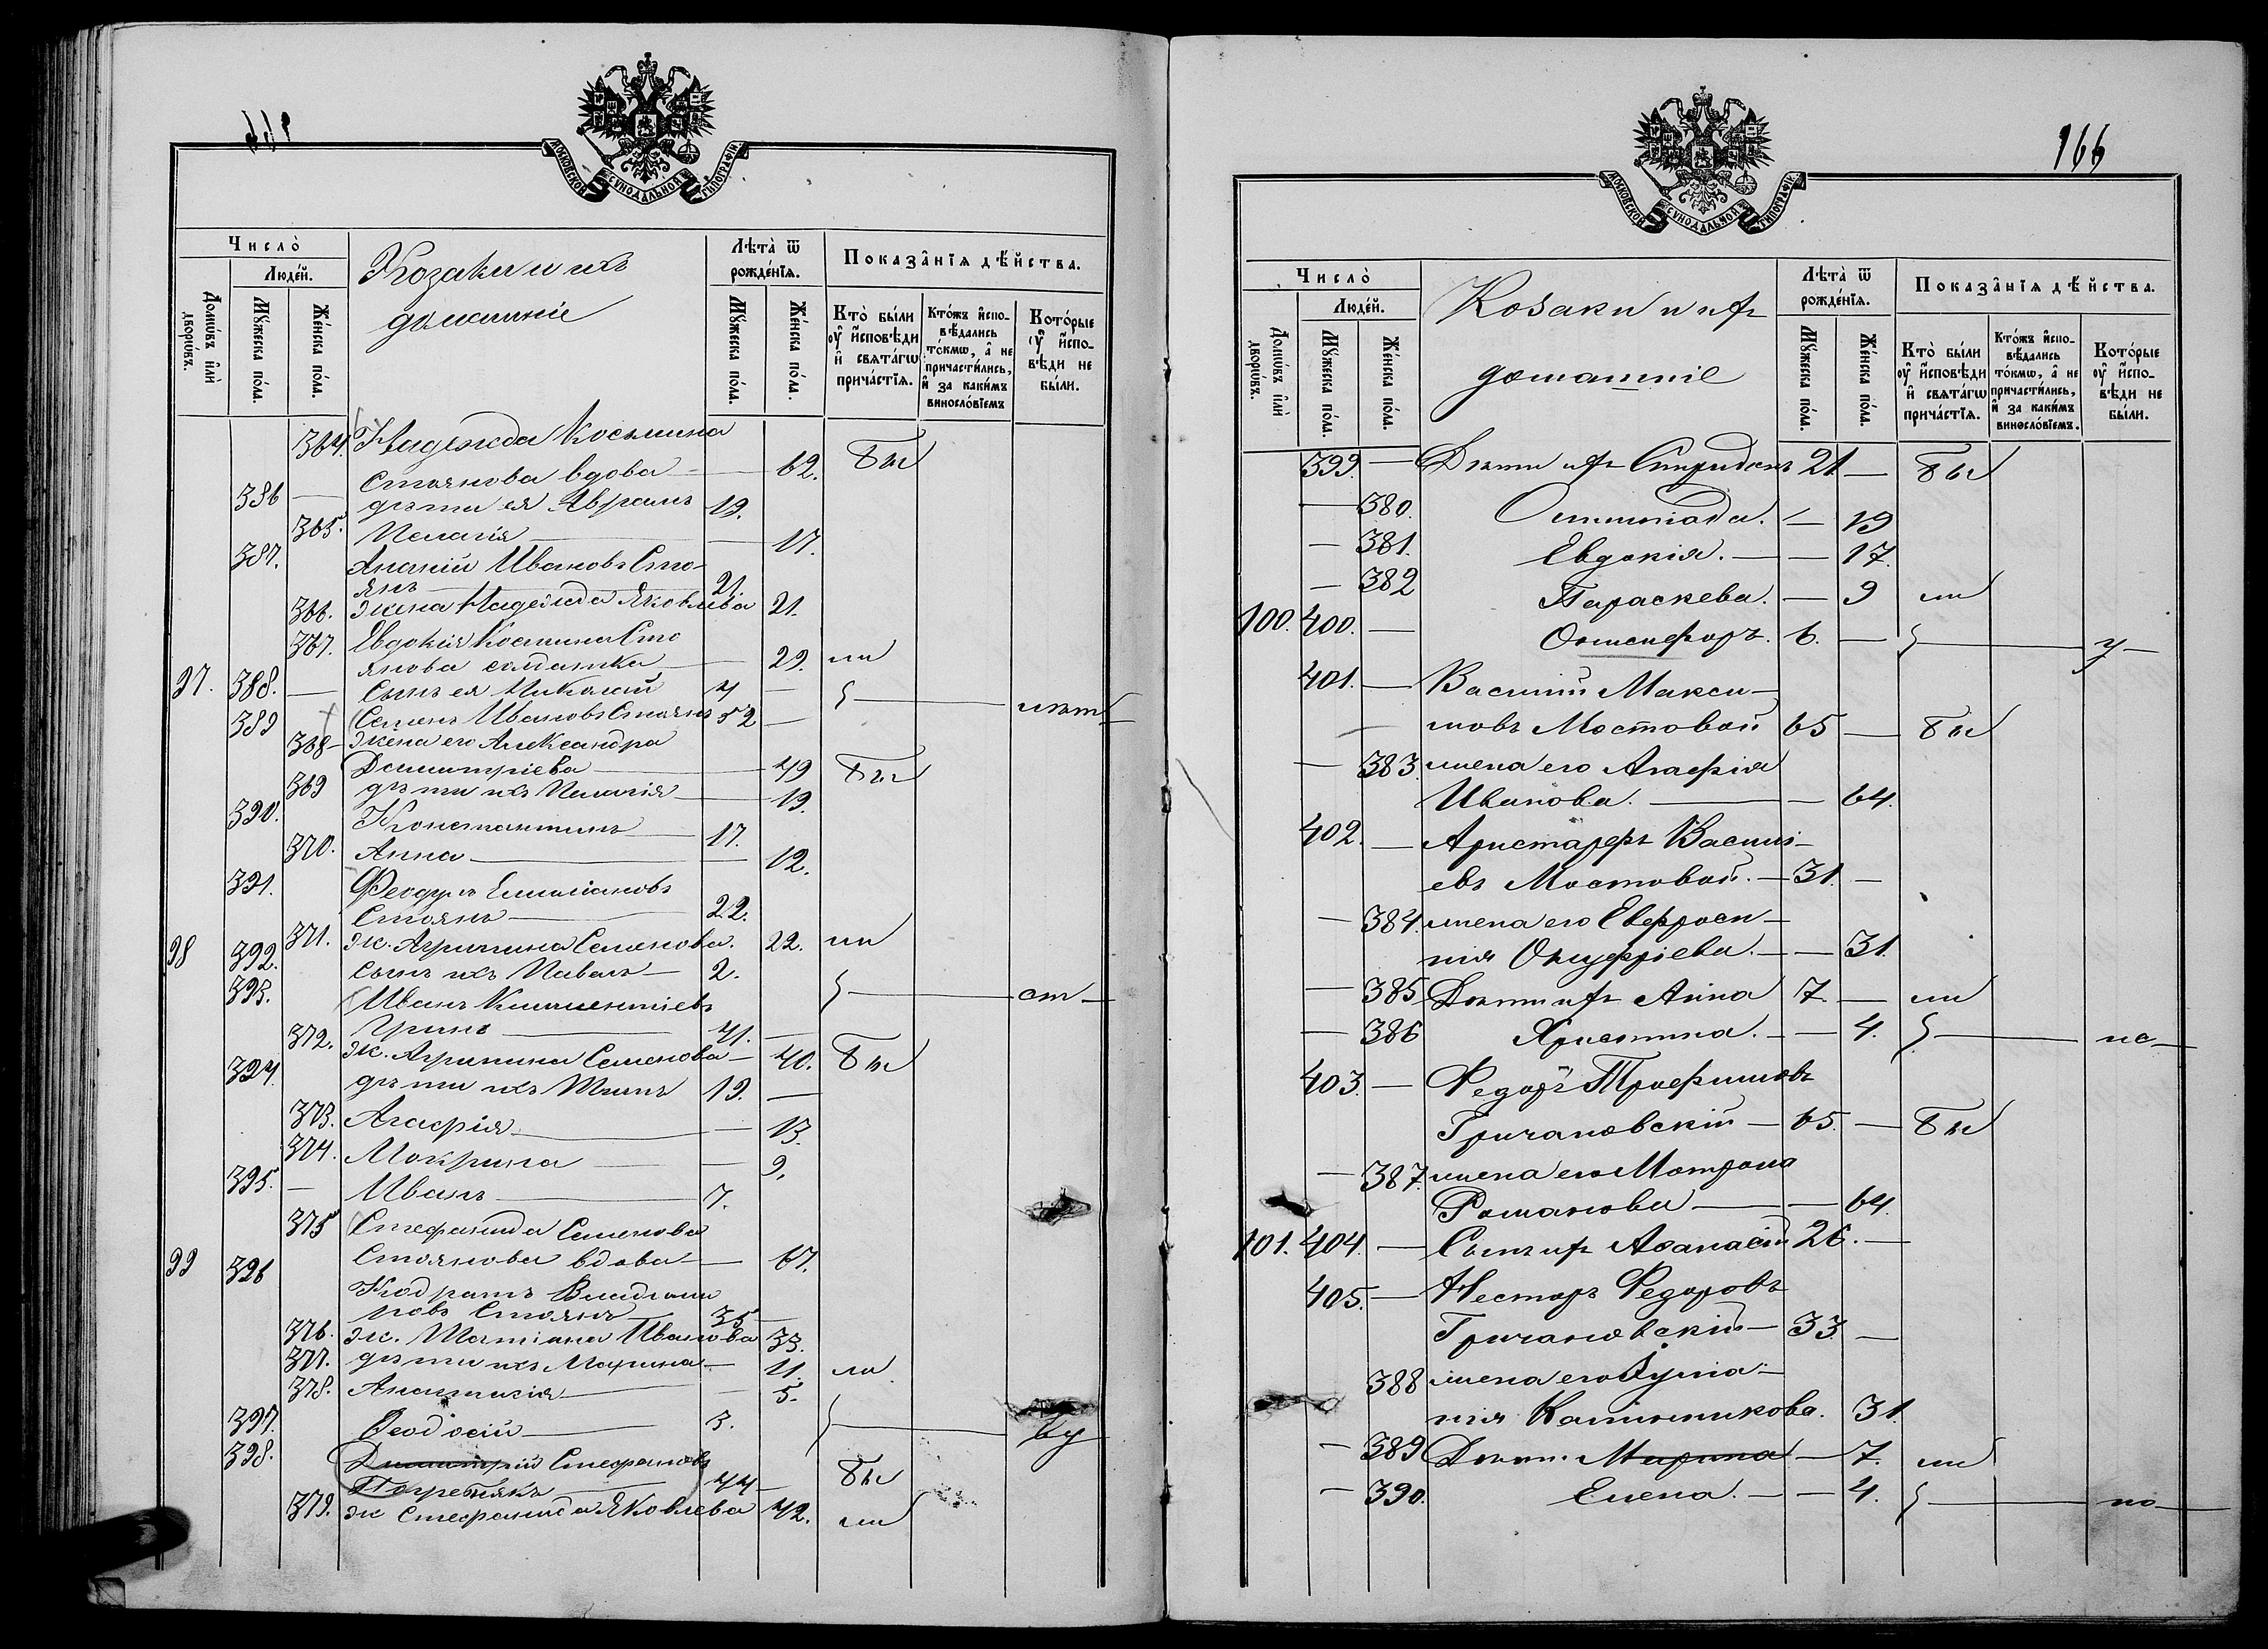 МОСКОВСКОЙ СѴНОДАЛЬНОЙ ТѴПОГРАФІИ
Число̀
Люде́й.
Домѡ́въ и҆лѝ дворѡ́въ.
Мꙋ́жеска по́ла.
Же́нска по́ла.
Козаки и ихъ
домашніе
Лѣта̀ ѿ рожде́нїѧ.
Мꙋ́жеска по́ла.
Же́нска по́ла.
Показа̑нїѧ дѣ́йства.
Кто̀ бы́ли оу҆ и҆сповѣди и҆ свѧта́гѡ прича́стїѧ.
Кто́жъ и҆сповѣ́дались то́кмѡ, а҆ не причасти́лись, и҆ за каки́мъ виносло́вїемъ
Кото́рые оу҆ и҆спо-вѣди не бы́ли.
364. Надежда Косьмина
Стоянова вдова — 62. бы
386 — дѣти ея Аврамъ 19.
365. Пелагія — 17.
387. Ананій Ивановъ Сто-
янъ 21.
366. жена Надежда Яковлева 21.
367. Евдокія Косьмина Сто
янова солдатка — 29. ли
97. 388. — Сынъ ея Николай 4 —
389 Семенъ Ивановъ Стоянъ 52 —
368 — жена его Александра
Димитріева — 49 бы
369 дѣти ихъ Пелагія — 19.
390. Константинъ 17.
370. Анна — 12.
391. Феодулъ Емиліановъ
Стоянъ 22.
371. ж. Агрипина Семенова. 22. ли
98 392. сынъ ихъ Павелъ — 2.
393. Иванъ Климентіевъ
Гринь 41. —
372. ж. Агрипина Семенова — 40. бы
394. дѣти ихъ Титъ 19. —
373. Агафія — 13.
374. Мокрина — 9.
395. — Иванъ 7.
375 Стефанида Семенова
Стоянова вдова — 67.
99 396 Кодратъ Владими
ровъ Стоянъ 35 —
376. ж. Татіана Иванова 33.
377. дѣти ихъ Марина — 11. ли
378. Анастасія — 5.
397. Ѳеодосій 3.
398. Димитрій Стефановъ
Погребнякъ 44 — бы
379. ж Стефанида Яковлева 42. ли
166
МОСКОВСКОЙ СѴНОДАЛЬНОЙ ТѴПОГРАФІИ
Число̀
Люде́й.
Домѡ́въ и҆лѝ дворѡ́въ.
Мꙋ́жеска по́ла.
Же́нска по́ла.
Козаки и ихъ
домашніе
Лѣта̀ ѿ рожде́нїѧ.
Мꙋ́жеска по́ла.
Же́нска по́ла.
Показа̑нїѧ дѣ́йства.
Кто̀ бы́ли оу҆ и҆сповѣди и҆ свѧта́гѡ прича́стїѧ.
Кто́жъ и҆спо-вѣ́дались то́кмѡ, а҆ не причасти́лись, и҆ за каки́мъ виносло́вїемъ.
Кото́рые оу҆ и҆спо-вѣди не бы́ли.
399. — Дѣти ихъ Спиридонъ 21 — бы
— 380. Олимпіада. — 19
— 381. Евдокія. — — 17.
— 382 Параскева. — 9 ли
100. 400. — Онисифоръ. 6. —
401. — Василій Макси-
мовъ Мостовой 65 — бы
— 383. жена его Агафія
Иванова. — — 64.
402. — Аристархъ Василі-
евъ Мостовой. — 31. —
— 384. жена его Евфроси-
нія Онуфріева. — — 31.
— 385 Дѣти ихъ Анна 7 — ли
— 386 Христина. — — 4.
403. — Федоръ Трофимовъ
Гричановскій — 65. — бы
— 387. жена его Матрона
Романова — — 64.
101. 404. — Сынъ их Аѳанасій 26. —
405. — Несторъ Федоровъ
Гричановскій — 33 —
388 жена его Іуліа-
нія Калинникова. 31.
— 389 Дѣти Марина — 7. ли
— 390. Елена. — — 4. но